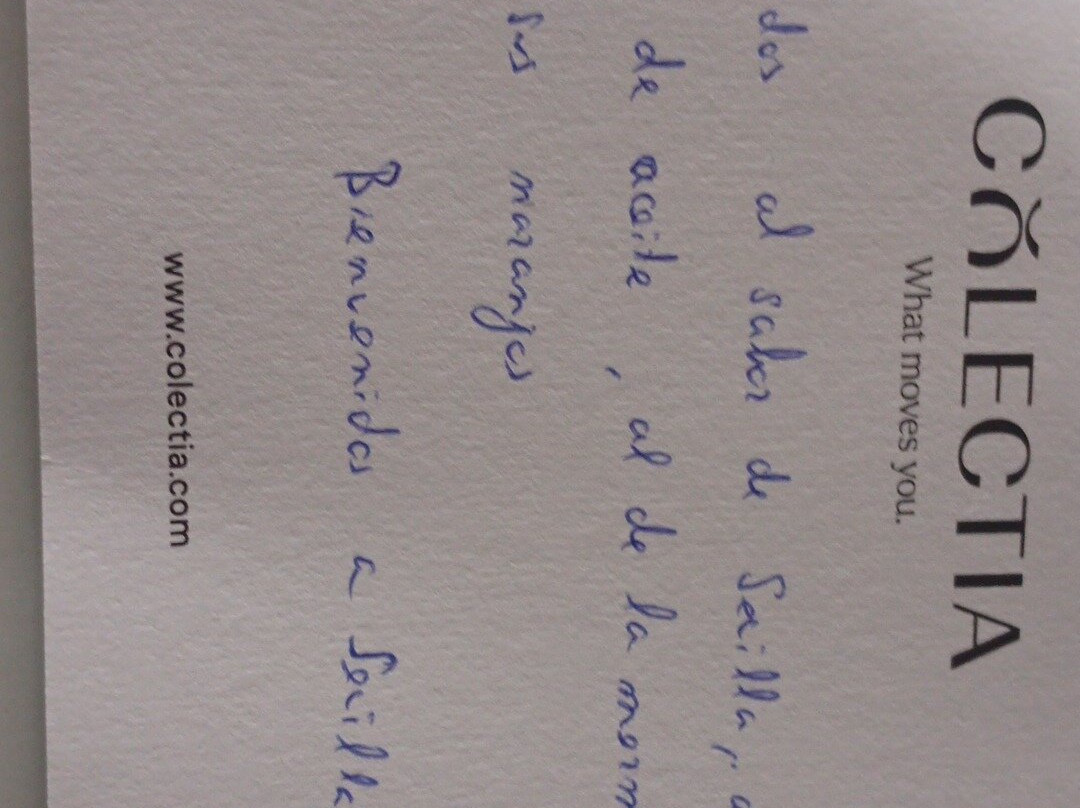 COLECTIA
What moves you.
dos al sabor de Sevilla,
de aceite, al de la
sus naranjos
Bienvenidos a Sevilla
www.colectia.com